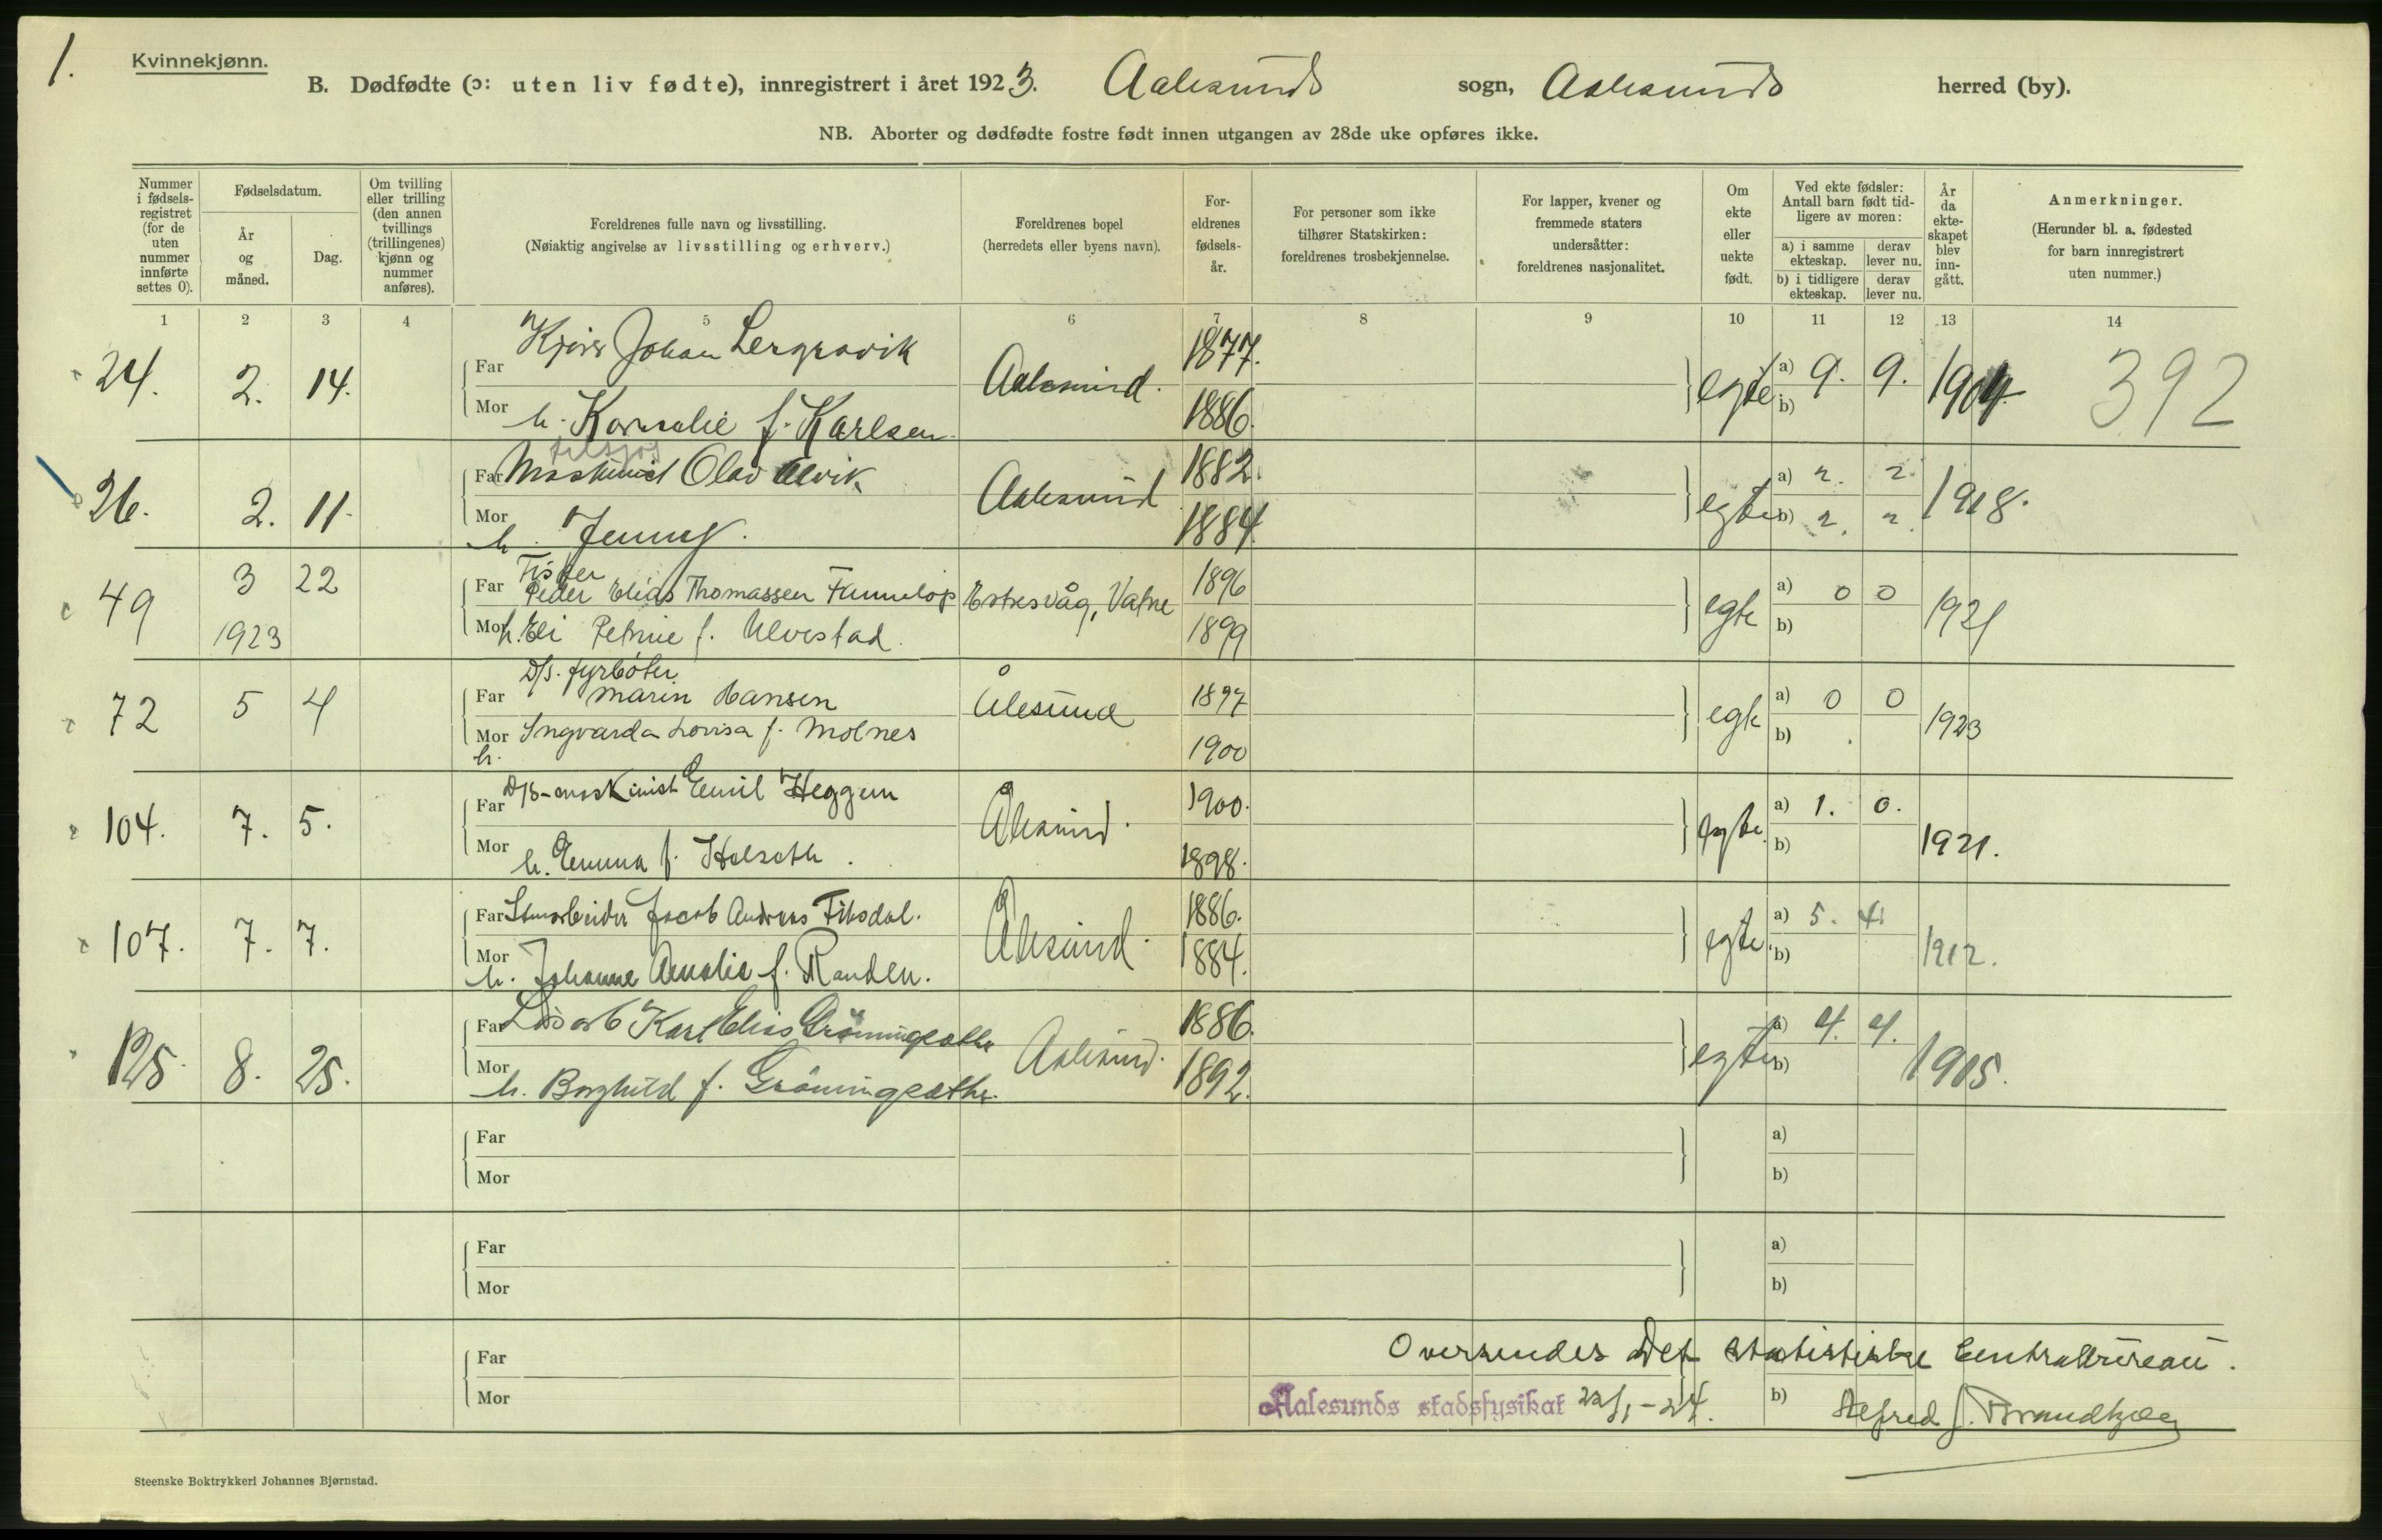 1.
Kvinnekjønn.
B. Dødfødte (ɔ: uten liv fødte), innregistrert i året 1923. Aalesunds sogn, Aalesunds herred (by).
NB. Aborter og dødfødte fostre født innen utgangen av 28de uke opføres ikke.
Nummer i fødselsregistret (for de uten nummer innførte settes 0).
Fødselsdatum.
År og måned.
Dag.
Om tvilling eller trilling (den annen tvillings (trillingenes) kjønn og nummer anføres).
Foreldrenes fulle navn og livsstilling.
(Nøiaktig angivelse av livsstilling og erhverv.)
Foreldrenes bopel
(herredets eller byens navn).
Foreldrenes fødselsår.
For personer som ikke tilhører Statskirken: foreldrenes trosbekjennelse.
For lapper, kvener og fremmede staters undersåtter: foreldrenes nasjonalitet.
Om ekte eller uekte født.
Ved ekte fødsler: Antall barn født tidligere av moren:
a) i samme ekteskap. derav lever nu.
b) i tidligere ekteskap. derav lever nu.
År da ekteskapet blev inngått.
Anmerkninger.
(Herunder bl. a. fødested for barn innregistrert uten nummer.)
1 2 3 4 5 6 7 8 9 10 11 12 13 14
24. 2. 14. Far Johan Lergrovik Aalesund. 1877. egte a) 9. 9. 1904 392
Mor h. Kornelie f. Karlsen 1886. b)
tilsjøs
26. 2. 11. Far Maskinist Olav Ulvik Aalesund 1882. egte a) 2. 2. 1918.
Mor h. Jenny. 1884. b) 2. 2.
Fisker
49 3 22 Far Peder Elias Thomassen Fannelop Estresvåg, Vatne 1896 egte a) 0 0 1921
1923 Mor h. Eli Petrine f. Ulvestad. 1899 b)
D/s. fyrbøter
72 5 4 Far Marin Hansen Ålesund 1897 egte a) 0 0 1923
Mor h. Ingvarda Lovisa f. Molnes 1900 b)
104. 7. 5. Far D/s-maskinist Emil Heggem Ålesund. 1900. egte. a) 1. 0. 1921.
Mor h. Emma f. Holseth. 1898. b)
107. 7. 7. Far Jacob Andreas Fiksdal. Ålesund. 1886. egte a) 5. 4. 1912.
Mor h. Johanne Amalie f. Randen. 1884. b)
125. 8. 25. Far Løsarb Karl Elias Grönningsæther Aalesund. 1886. egte a) 4. 4. 1915.
Mor h. Borghild f. Grönningsæther. 1892. b)
Far a)
Mor b)
Far a)
Mor b)
Far Oversendes Det statistiske Centralbureau.
Mor Aalesunds stadsfysikat 22/1-24. b) Alfred
Steenske Boktrykkeri Johannes Bjørnstad.